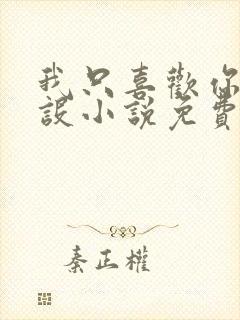 我只喜歡你
設小說免費
秦正權